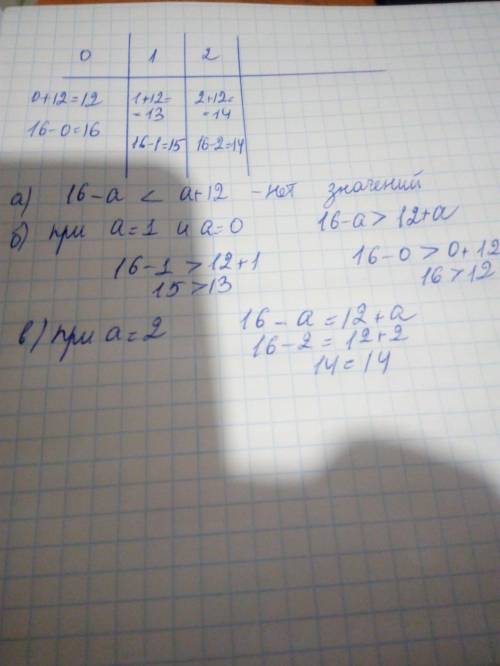 0 1 2
0+12=12 1+12= 2+12=
=13 =14
16-0=16 16-1=15 16-2=14
а) 16-а < а+12 - нет значений
б) при а=1 и а=0 16-а > 12+а
16-1 > 12+1 16-0 > 0+12
15 > 13 16 > 12
в) при а=2 16-а = 12+а
16-2 = 12+2
14 = 14